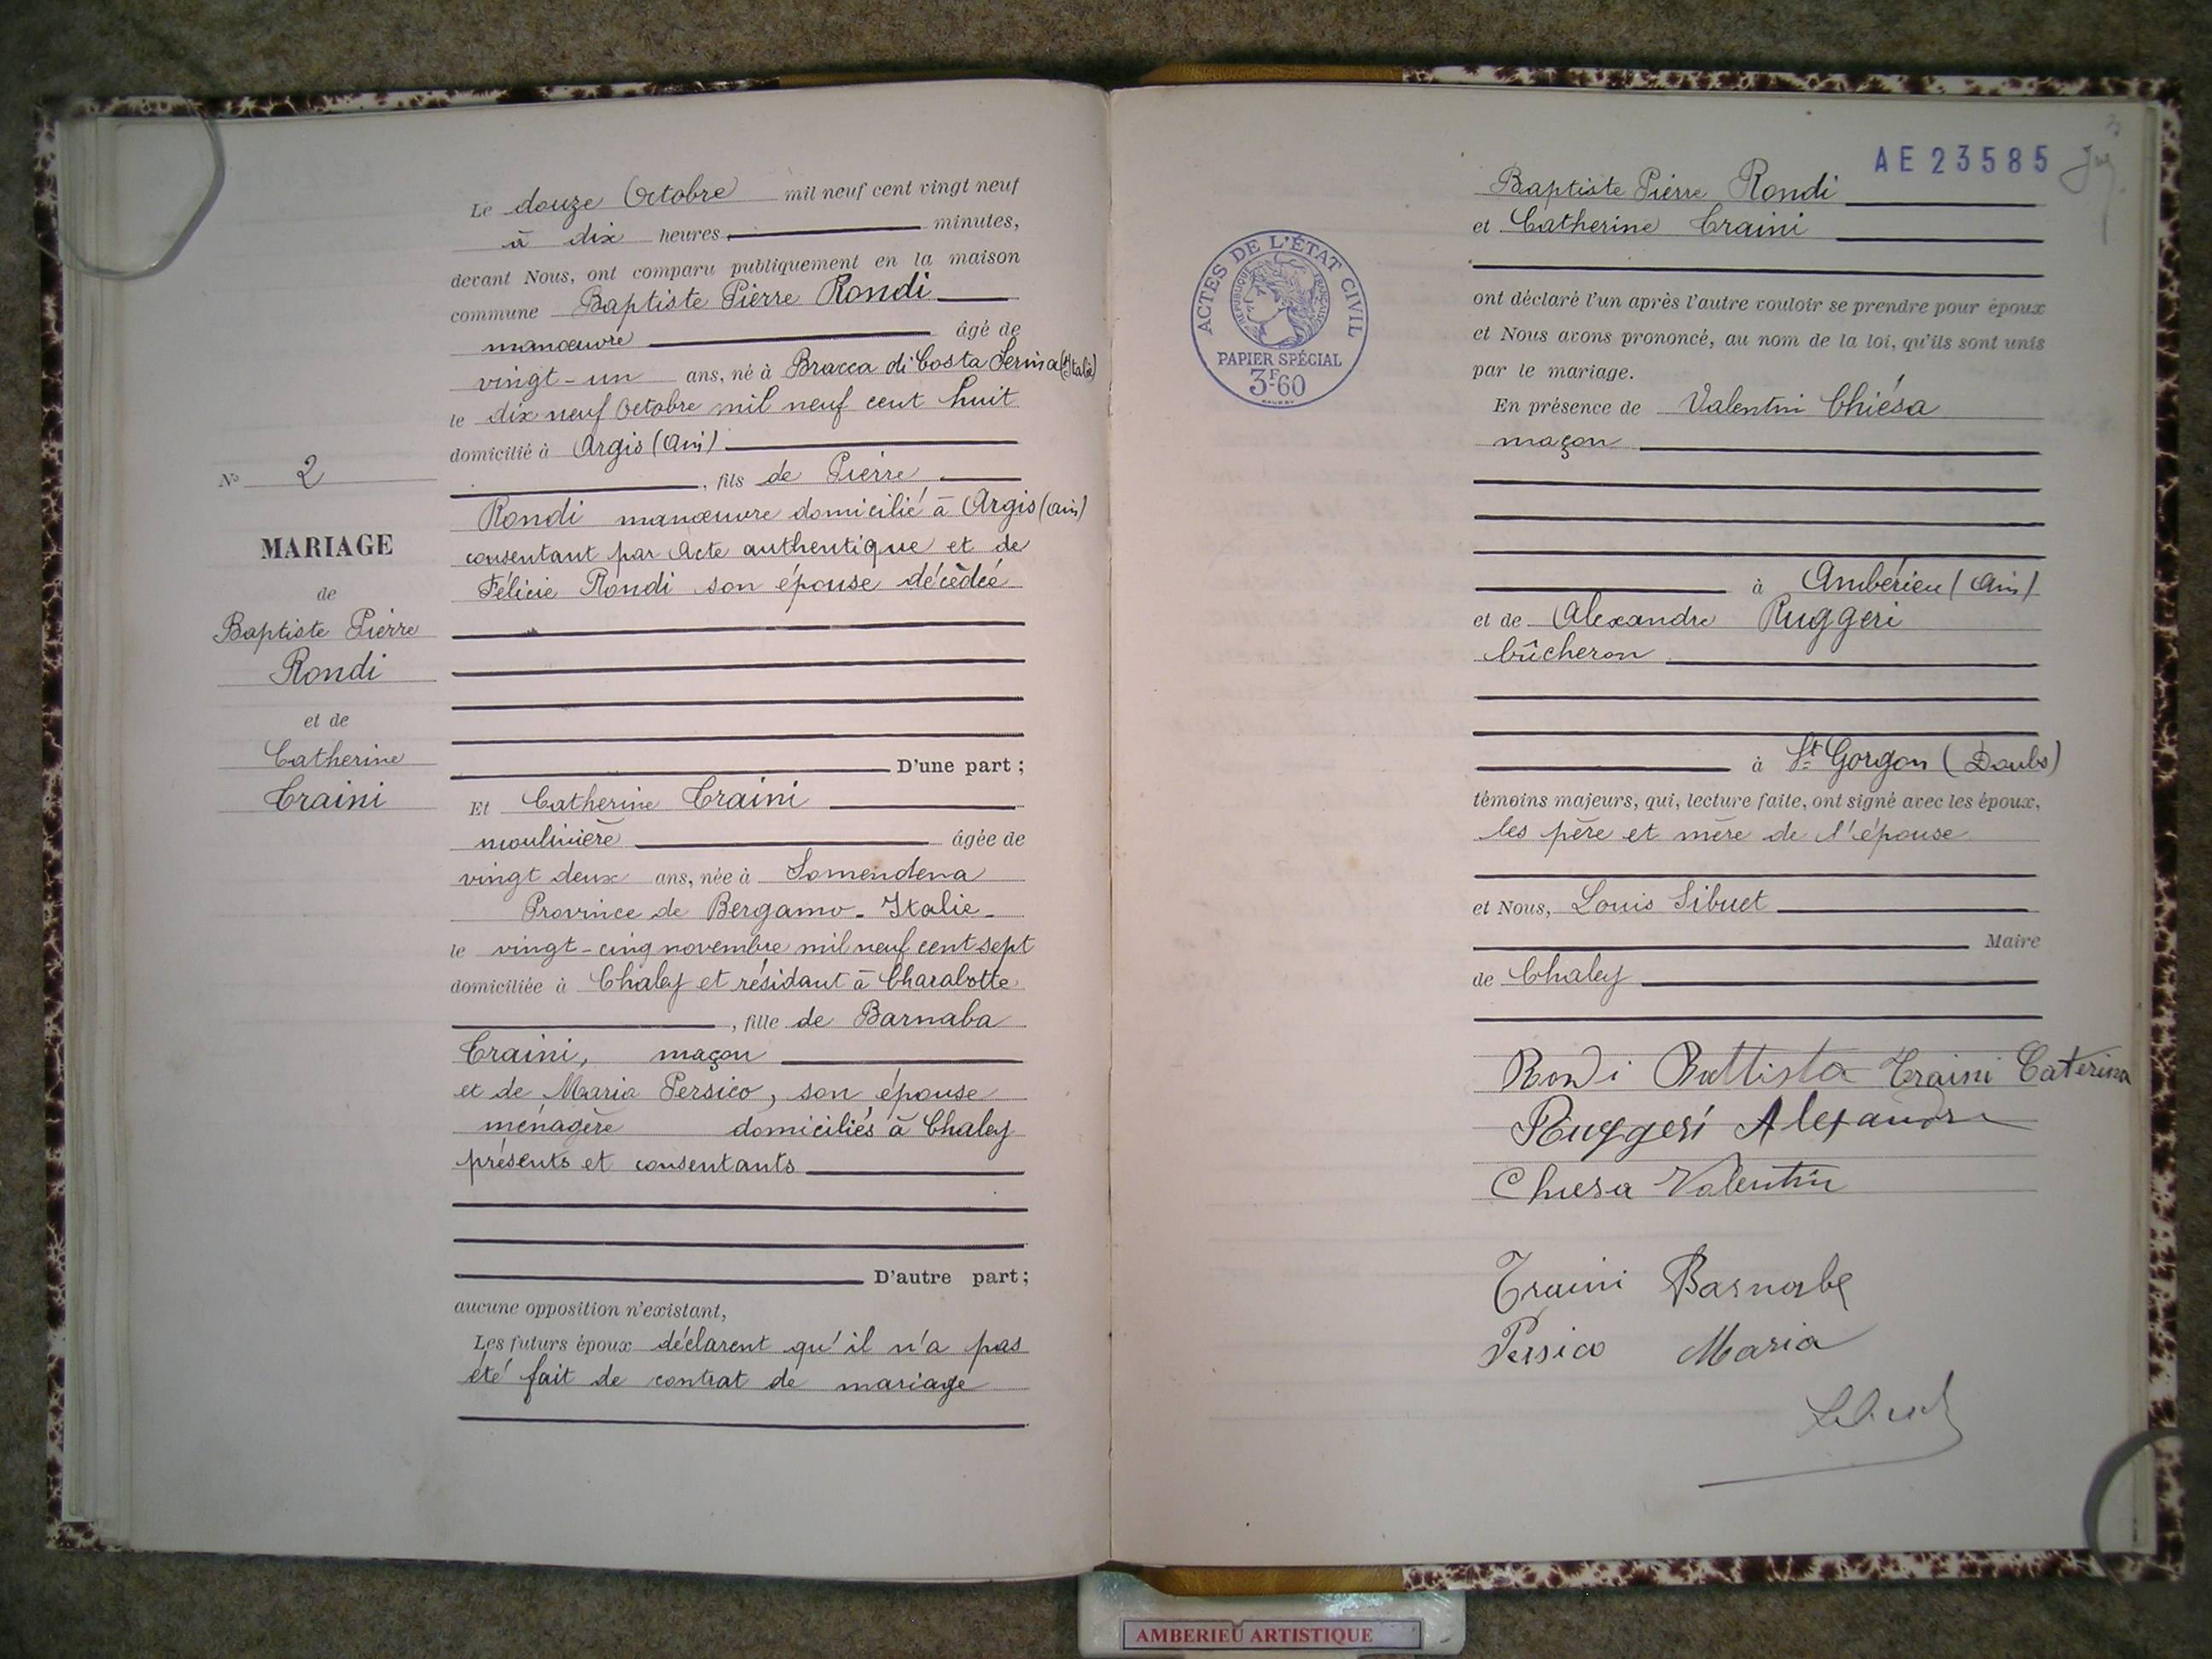 Le douze Octobre mil neuf cent vingt neuf
à dix heures minutes,
devant Nous, ont comparu publiquement en la maison
commune Baptiste Pierre Rondi
manœuvre âgé de
vingt-un ans, né à Bracca di Costa Serina (Italie)
le dix neuf Octobre mil neuf cent huit
domicilié à Argis (Ain)
, fils de Pierre
Rondi manœuvre domicilié à Argis (Ain)
consentant par Acte authentique et de
Félicie Rondi son épouse décèdée
D'une part ;
N° 2
MARIAGE
de
Baptiste Pierre
Rondi
et de
Catherine
Traini
Et Catherine Traini
moulinière âgée de
vingt deux ans, née à Somendena
Province de Bergamo - Italie -
le vingt-cinq novembre mil neuf cent sept
domiciliée à Chaley et résidant à Charabotte
, fille de Barnaba
Traini, maçon
et de Maria Persico, son épouse
ménagère domiciliés à Chaley
présents et consentants
D'autre part ;
aucune opposition n'existant,
Les futurs époux déclarent qu'il n'a pas
été fait de contrat de mariage
AE 23585
ACTES DE L'ÉTAT CIVIL
RÉPUBLIQUE FRANÇAISE
PAPIER SPÉCIAL
3F60
Baptiste Pierre Rondi
et Catherine Traini
ont déclaré l'un après l'autre vouloir se prendre pour époux
et Nous avons prononcé, au nom de la loi, qu'ils sont unis
par le mariage.
En présence de Valentin Chiésa
maçon
à Ambérieu (Ain)
et de Alexandre Ruggeri
bûcheron
à St Gorgon (Doubs)
témoins majeurs, qui, lecture faite, ont signé avec les époux,
les père et mère de l'épouse
et Nous, Louis Sibuet
Maire
de Chaley
Rondi Battista Traini Caterina
Ruggeri Alexandre
Chiesa Valentin
Traini Barnabe
Persico Maria
AMBERIEU ARTISTIQUE